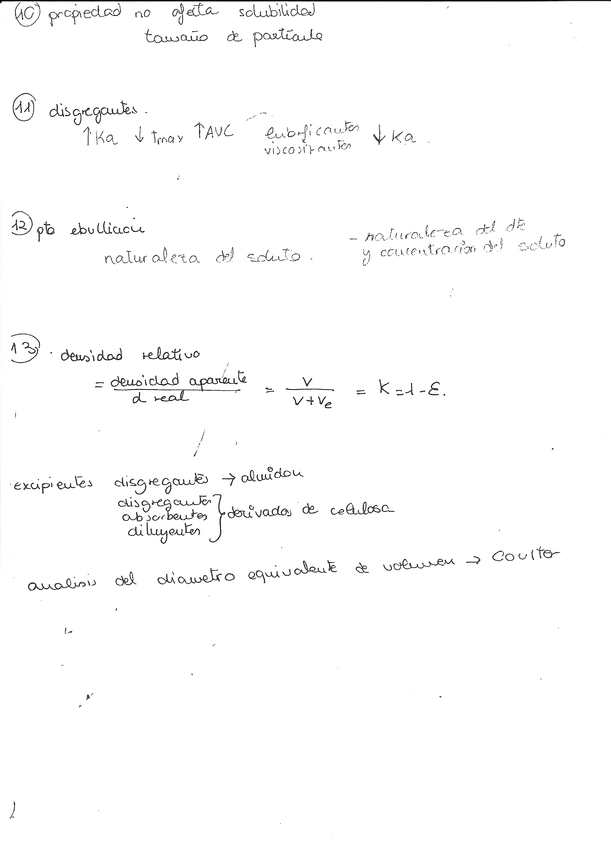 10) propiedad no afecta solubilidad
tamaño de partícula
11) disgregantes.
↑Ka ↓ tmax ↑AUC lubrificantes viscosizantes ↓ Ka.
12) pto ebullición
naturaleza del soluto.
- naturaleza del dte
y concentración del soluto
13) · densidad relativo
= densidad aparente / d real = V / V+Ve = K=1-ε.
excipientes disgregantes → almidon
disgregantes
absorbentes } derivados de celulosa
diluyentes
analisis del diametro equivalente de volumen → Coulter